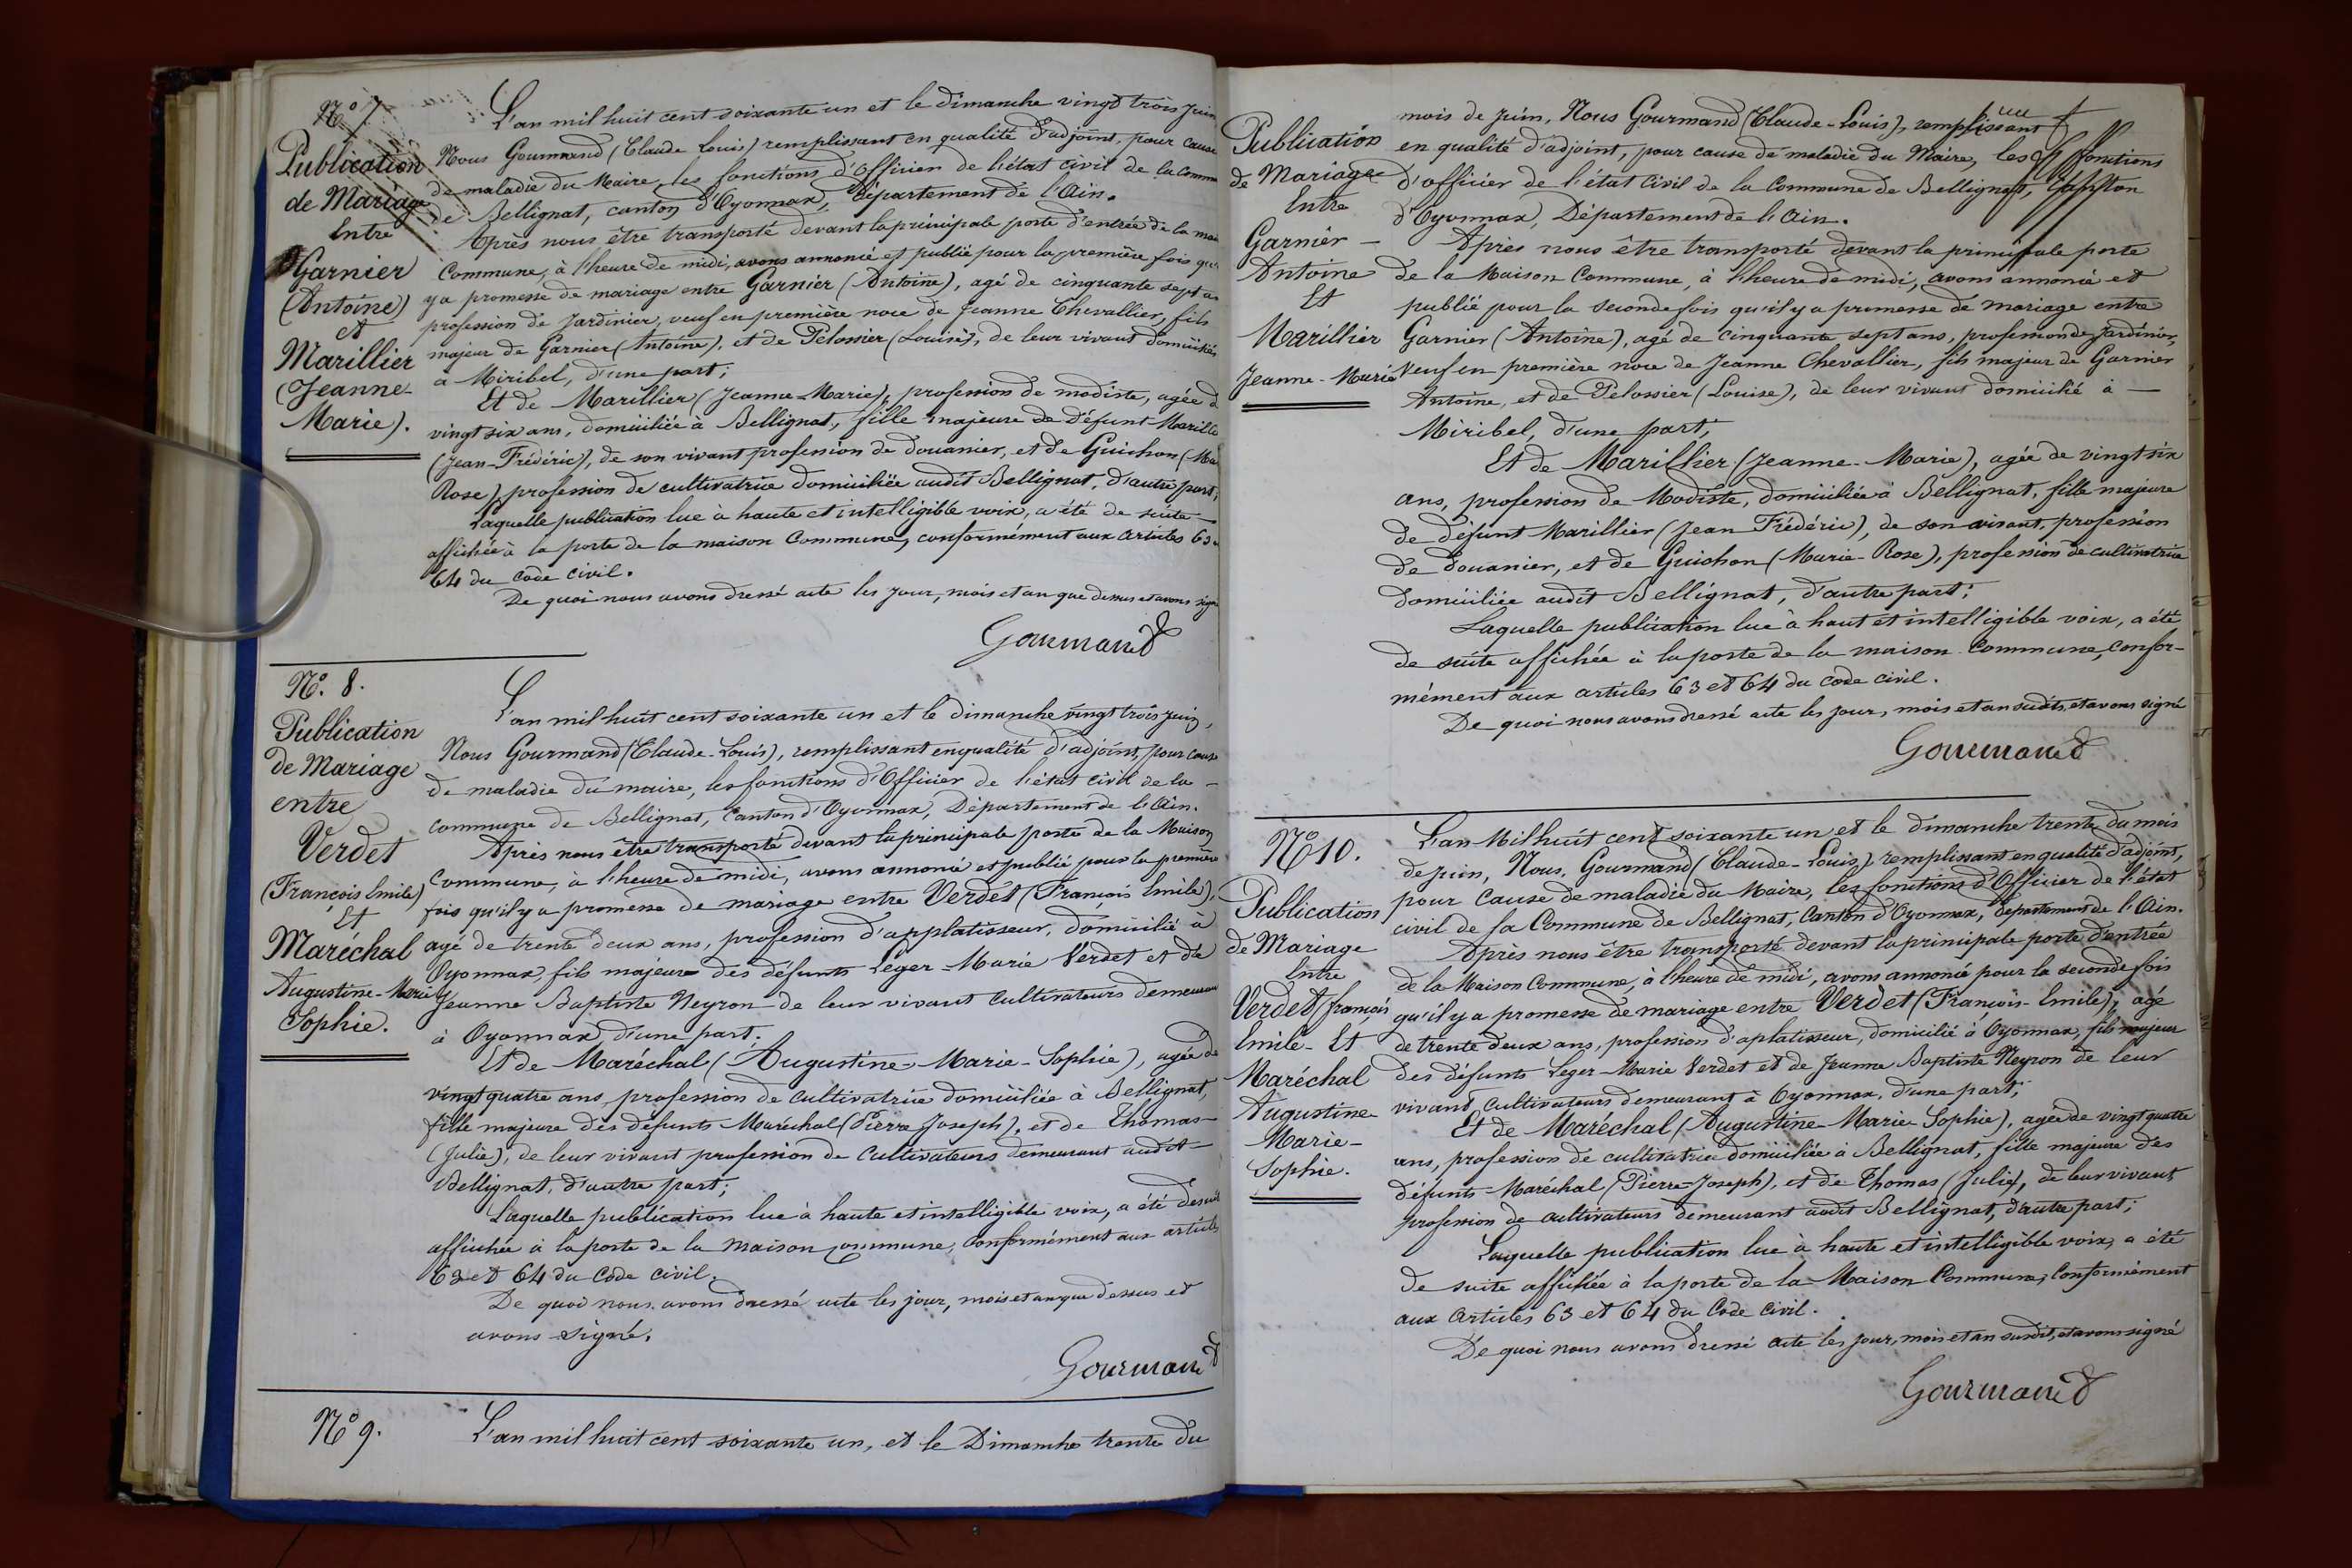 N° 7
Publication
de Mariage
Entre
Garnier
(Antoine)
et
Marillier
(Jeanne-
Marie).
L'an mil huit cent soixante un et le dimanche vingt trois juin
Nous Gourmand (Claude Louis) remplissant en qualité d'adjoint, pour cause
de maladie du Maire, les fonctions d'Officier de l'état civil de la Comm
de Bellignat, canton d'Oyonnax, département de l'Ain.
Après nous être transporté devant la principale porte d'entrée de la mai
Commune, à l'heure de midi, avons annoncé et publié pour la première fois qu'
y a promesse de mariage entre Garnier (Antoine), agé de cinquante sept an
profession de Jardinier, veuf en première noce de Jeanne Chevallier, fils
majeur de Garnier (Antoine), et de Pelossier (Louise), de leur vivant domiciliés
à Miribel, d'une part;
Et de Marillier (Jeanne-Marie), profession de modiste, agée d
vingt six ans, domiciliée à Bellignat, fille majeure de défunt Marillie
(Jean-Frédéric), de son vivant profession de douanier, et de Guichon (Ma
Rose), profession de cultivatrice domiciliée audit Bellignat, d'autre part;
Laquelle publication lue à haute et intelligible voix, a été de suite
affichée à la porte de la maison Commune, conformément aux articles 63 e
64 du Code civil.
De quoi nous avons dressé acte les jour, mois et an que dessus et avons signé
Gourmand
N° 8.
Publication
de Mariage
entre
Verdet
(François Emile)
Et
Maréchal
Augustine-Marie
Sophie.
L'an mil huit cent soixante un et le dimanche vingt trois juin,
Nous Gourmand (Claude-Louis), remplissant en qualité d'adjoint, pour cause
de maladie du maire, les fonctions d'Officier de l'état civil de la
commune de Bellignat, Canton d'Oyonnax, Département de l'Ain.
Après nous être transporté devant la principale porte de la Maison
Commune, à l'heure de midi, avons annoncé et publié pour la première
fois qu'il y a promesse de mariage entre Verdet (François Emile),
agé de trente deux ans, profession d'applatisseur, domicilié à
Oyonnax, fils majeure des défunts Léger-Marie Verdet et de
Jeanne Baptiste Neyron de leur vivant cultivateurs demeurant
à Oyonnax, d'une part.
Et de Maréchal (Augustine-Marie-Sophie), agée de
vingt quatre ans, profession de cultivatrice domiciliée à Bellignat,
fille majeure des défunts Maréchal (Pierre Joseph), et de Thomas
(Julie), de leur vivant profession de Cultivateurs demeurant audit
Bellignat, d'autre part;
Laquelle publication lue à haute et intelligible voix, a été de suite
affichée à la porte de la Maison commune, conformément aux articles
63 et 64 du Code civil.
De quoi nous avons dressé acte les jour, mois et an que dessus et
avons signé.
Gourmand
N° 9.
L'an mil huit cent soixante un, et le Dimanche trente du
Publication
de Mariage
Entre
Garnier
Antoine
Et
Marillier
Jeanne-Marie
mois de juin, Nous Gourmand (Claude-Louis), remplissant
en qualité d'adjoint, pour cause de maladie du Maire, les fonctions
d'officier de l'état civil de la Commune de Bellignat, Canton
d'Oyonnax, Département de l'Ain.
Après nous être transporté devant la principale porte
de la Maison Commune, à l'heure de midi, avons annoncé et
publié pour la seconde fois qu'il y a promesse de mariage entre
Garnier (Antoine), agé de cinquante sept ans, profession de Jardinier,
veuf en première noce de Jeanne Chevallier, fils majeur de Garnier
Antoine, et de Pelossier (Louise), de leur vivant domicilié à
Miribel, d'une part;
Et de Marillier (Jeanne-Marie), agée de vingt six
ans, profession de Modiste, domiciliée à Bellignat, fille majeure
de défunt Marillier (Jean Frédéric), de son vivant, profession
de douanier, et de Guichon (Marie-Rose), profession de cultivatrice
domiciliée audit Bellignat, d'autre part;
Laquelle publication lue à haut et intelligible voix, a été
de suite affichée à la porte de la maison Commune, confor-
mément aux articles 63 et 64 du Code civil.
De quoi nous avons dressé acte les jour, mois et an susdits, et avons signé
Gourmand
N° 10.
Publication
de Mariage
Entre
Verdet françois
Emile- Et
Maréchal
Augustine
Marie-
Sophie.
L'an Mil huit cent soixante un et le dimanche trente du mois
de juin, Nous, Gourmand (Claude-Louis), remplissant en qualité d'adjoint,
pour cause de maladie du Maire, les fonctions d'Officier de l'état
civil de la Commune de Bellignat, Canton d'Oyonnax, département de l'Ain.
Après nous être transporté devant la principale porte d'entrée
de la Maison Commune, à l'heure de midi, avons annoncé pour la seconde fois
qu'il y a promesse de mariage entre Verdet (François-Emile), agé
de trente deux ans, profession d'aplatisseur, domicilié à Oyonnax, fils majeur
des défunts Leger-Marie Verdet et de Jeanne Baptiste Neyron de leur
vivant cultivateurs demeurant à Oyonnax, d'une part;
Et de Maréchal (Augustine-Marie-Sophie), agée de vingt quatre
ans, profession de cultivatrice domiciliée à Bellignat, fille majeure des
défunts Maréchal (Pierre-Joseph), et de Thomas (Julie), de leur vivant
profession de cultivateurs demeurant audit Bellignat, d'autre part;
Laquelle publication lue à haute et intelligible voix, a été
de suite affichée à la porte de la Maison Commune, Conformément
aux Articles 63 et 64 du Code civil.
De quoi nous avons dressé acte les jour, mois et an susdit, et avons signé
Gourmand